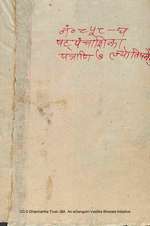 नं० ८५८-घ
षट्पंचाशिका
पत्राणि ७ (ज्योतिषम्)
CC-0 Dharmartha Trust J&K. An eGangotri-Vaidika Bharata Initiative